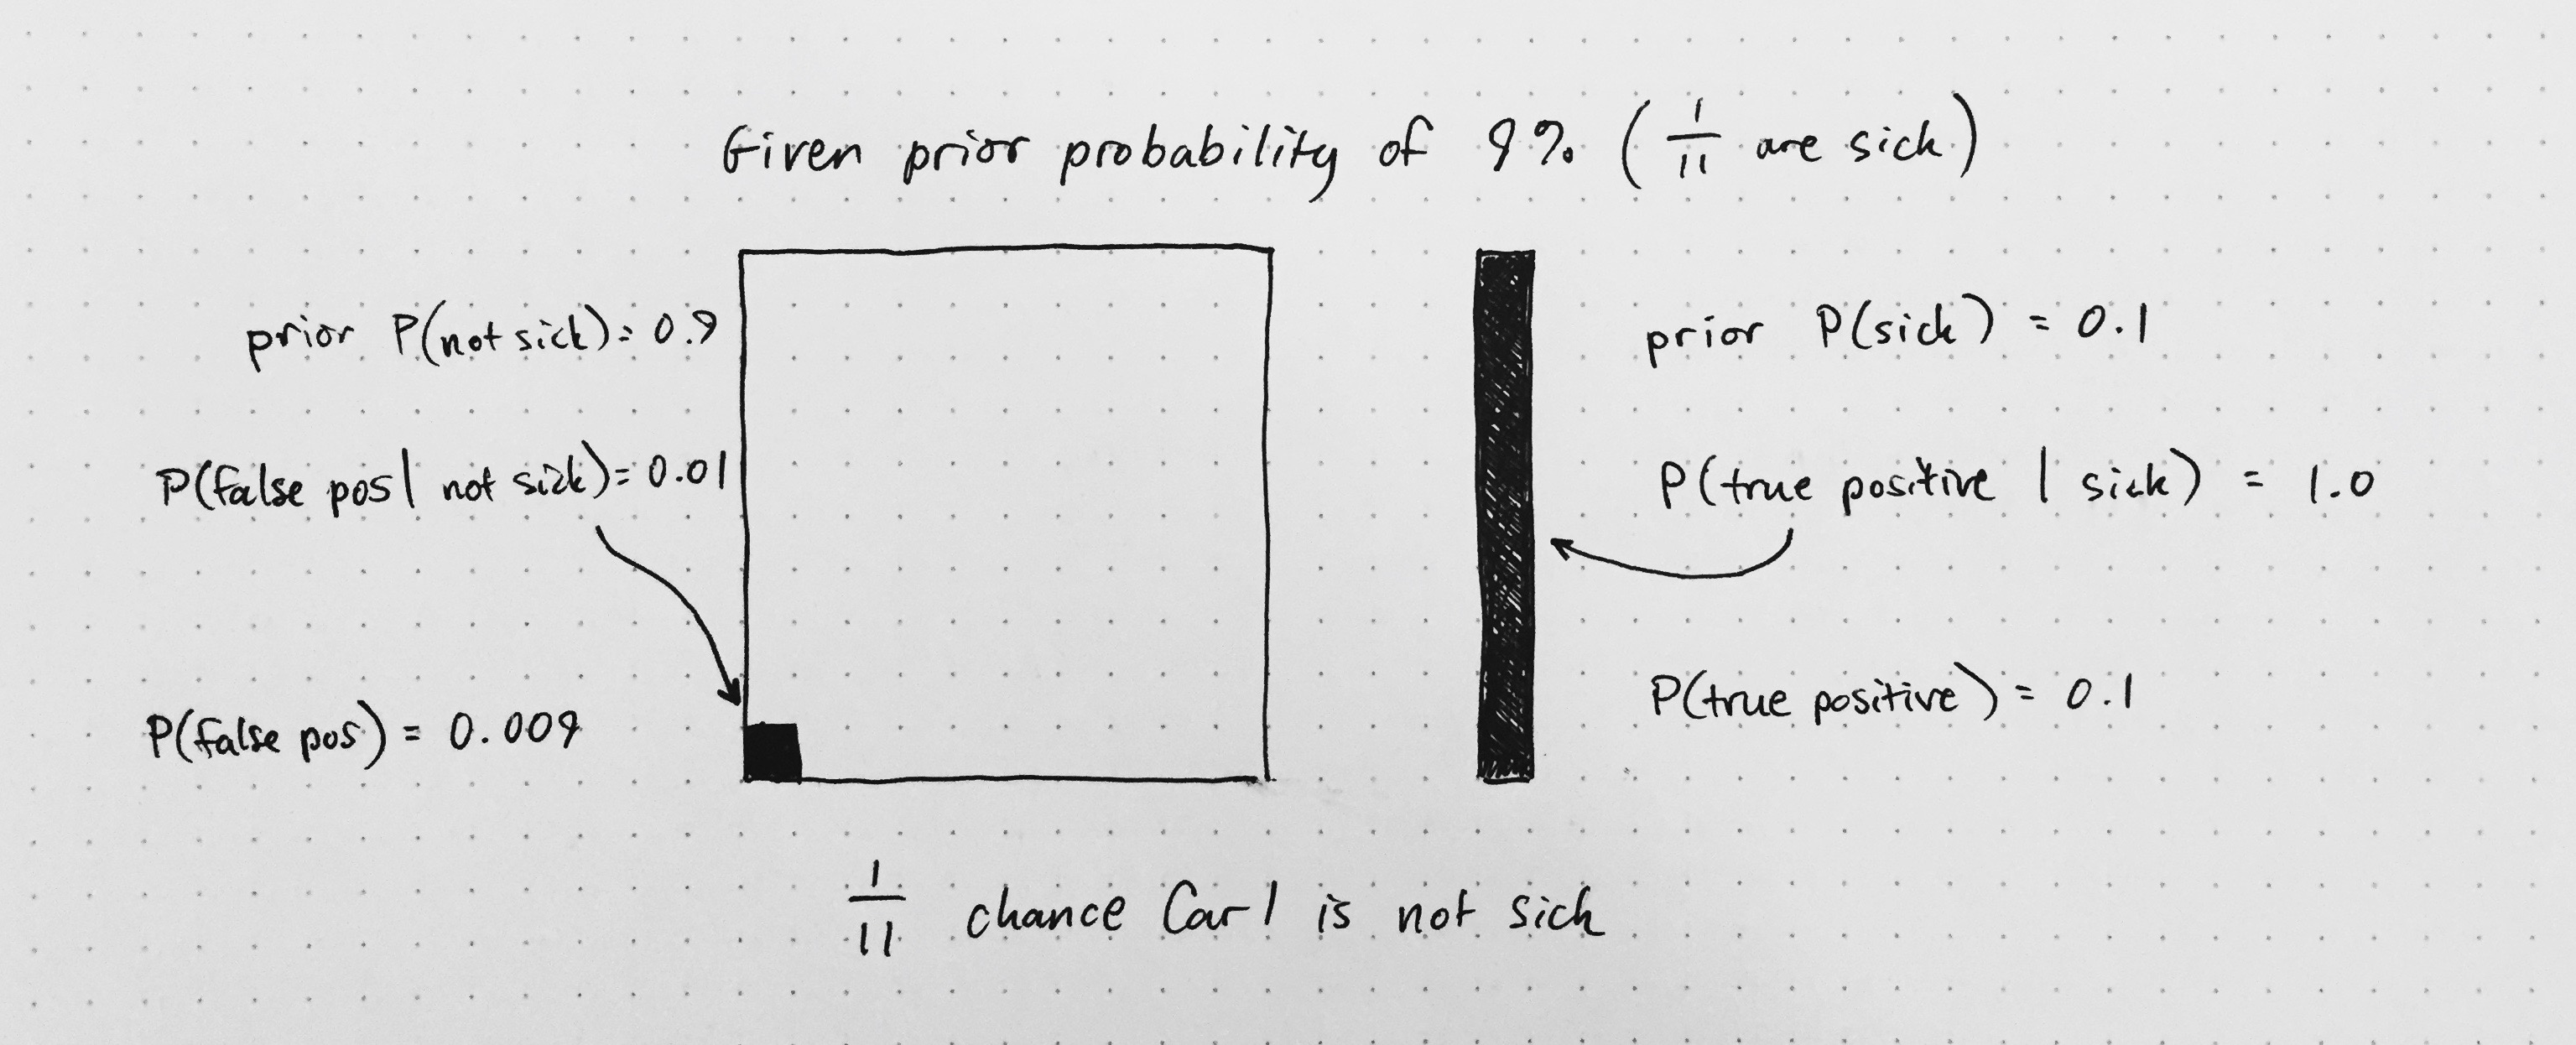 Given prior probability of 9% (1/11 are sick)
prior P(not sick) = 0.9
P(false pos | not sick) = 0.01
P(false pos) = 0.009
prior P(sick) = 0.1
P(true positive | sick) = 1.0
P(true positive) = 0.1
1/11 chance Carl is not sick